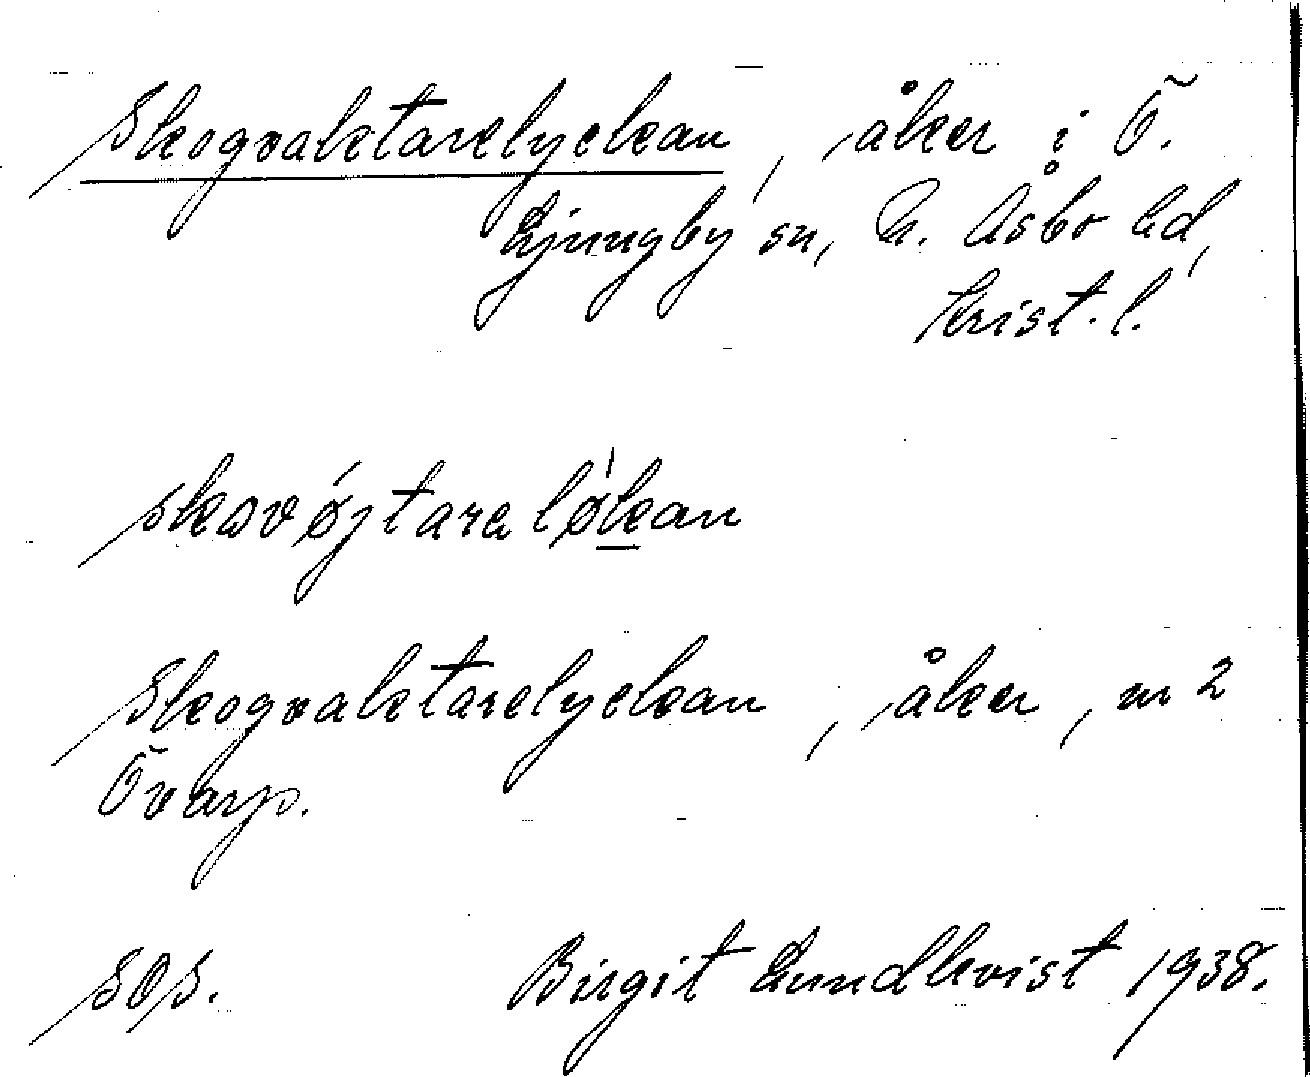 Skogvaktarelyckan, åker i Ö.
Ljungby sn, N. Åsbo hd,
Krist. l.
skɷvǿjtara løḱan
Skogvaktarelyckan, åker, nr 2
Övarp.
SOS. Birgit Lundkvist 1938.